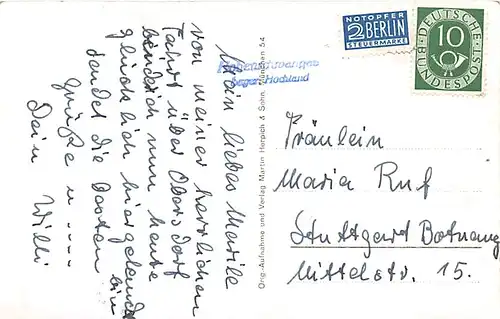 Mein liebes Marile
von meiner herrlichen
Fahrt über Oberstdorf
bin ich nun heute
glücklich hier gelandet
sendet die besten
Grüße u.....
Dein Willi
Orig.-Aufnahme und Verlag Martin Herpich & Sohn, München 54
Bayer. Hochland
NOTOPFER
2 BERLIN
STEUERMARKE
DEUTSCHE
BUNDESPOST
10
Fräulein
Maria Ruf
Stuttgart Botnang
Mittelstr. 15.